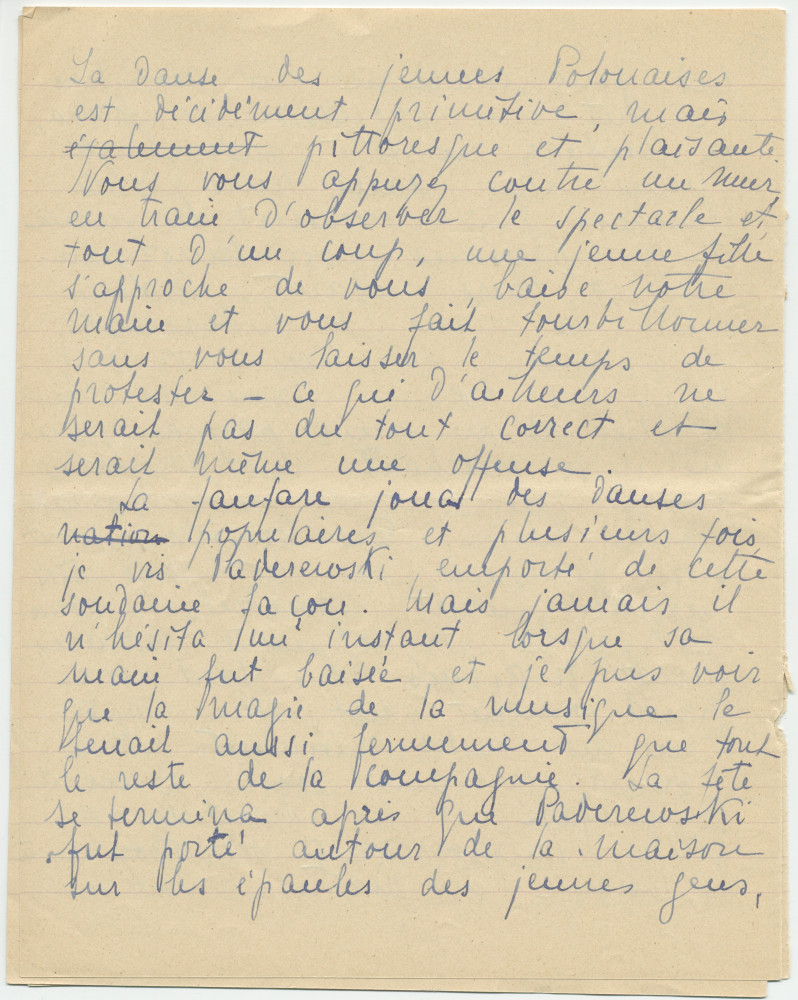 La danse des jeunes Polonaises
est décidément primitive, mais
également pittoresque et plaisante
Vous vous appuyez contre un mur
en train d'observer le spectacle et,
tout d'un coup, une jeune fille
s'approche de vous, baise votre
main et vous fait tourbillonner
sans vous laisser le temps de
protester – ce qui d'ailleurs ne
serait pas du tout correct et
serait même une offense.
La fanfare joua des danses
nation populaires et plusieurs fois
je vis Paderewski emporté de cette
soudaine façon. Mais jamais il
n'hésita un instant lorsque sa
main fut baisée et je pus voir
que la magie de la musique le
tenait aussi fermement que tout
le reste de la compagnie. La fête
se termina après que Paderewski
fut porté autour de la maison
sur les épaules des jeunes gens,